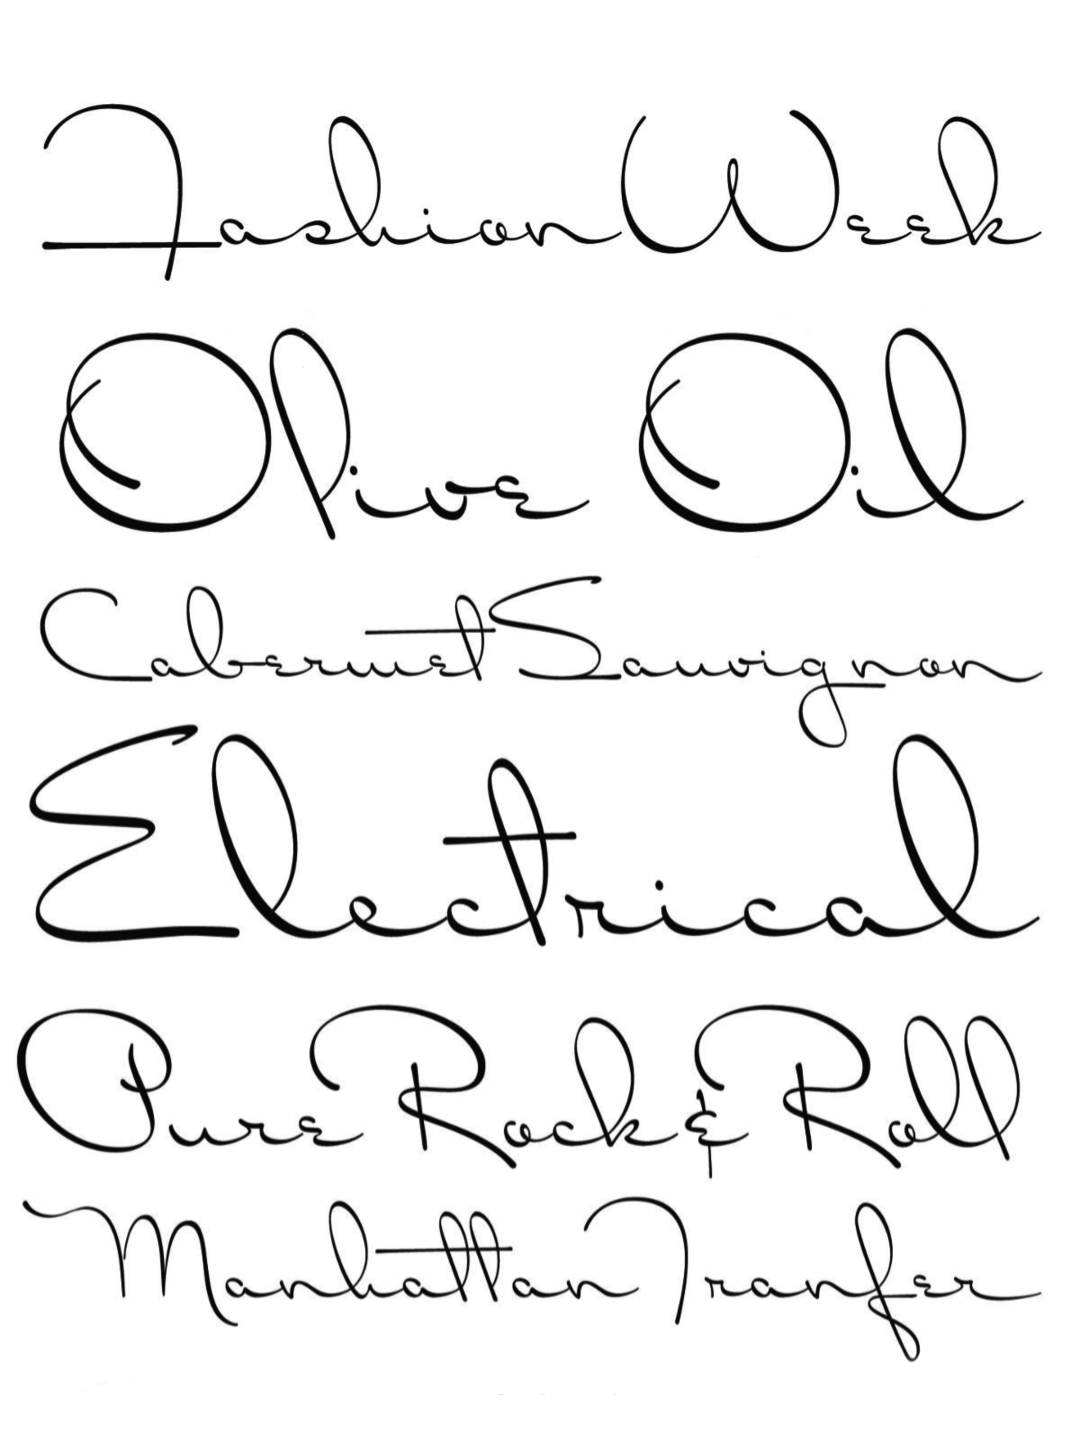 Fashion Week
Olive Oil
Cabernet Sauvignon
Electrical
Pure Rock & Roll
Manhattan Tranfer